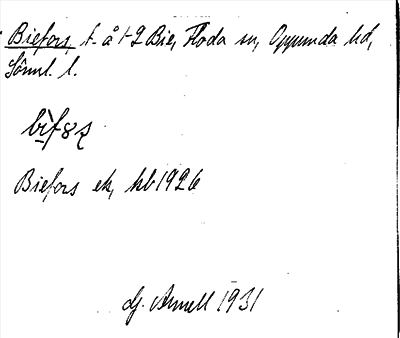 Biefors, t. å 1-2 Bie, Floda sn, Oppunda hd,
Söml. l.
Biefors ek, kb 1926
Arnell 1931